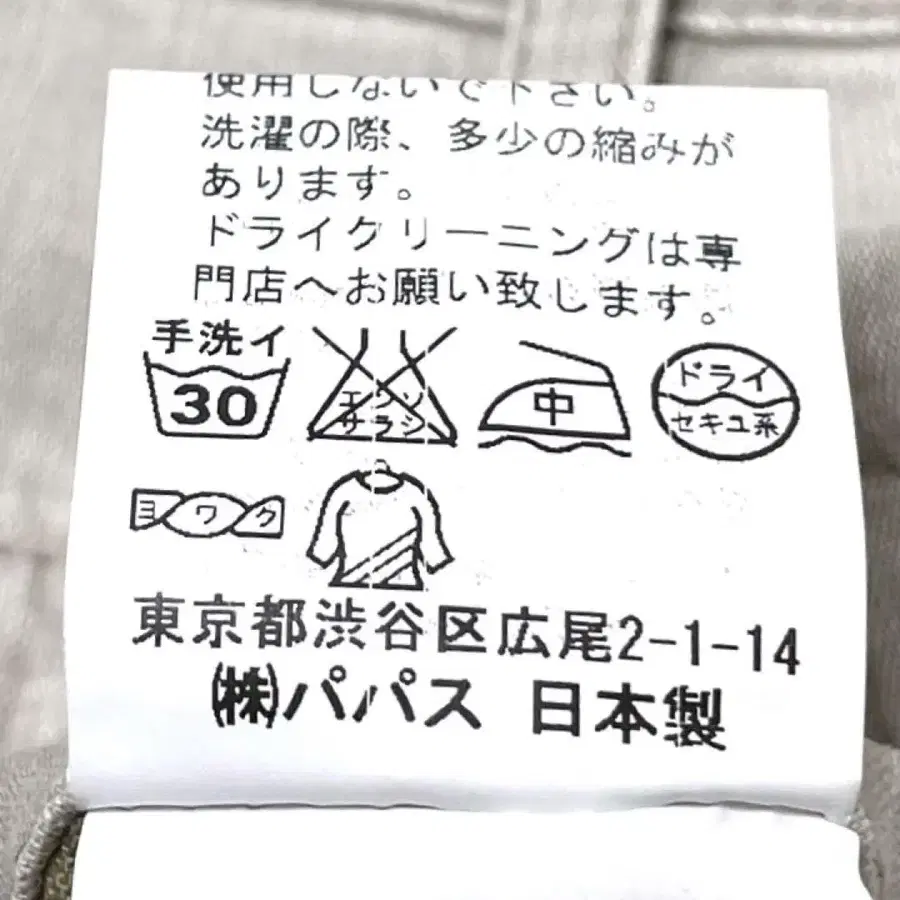 使用しないで下さい。
洗濯の際、多少の縮みが
あります。
ドライクリーニングは専
門店へお願い致します。
手洗イ
30
エンソ
サラシ
中
ドライ
セキユ系
ヨワク
東京都渋谷区広尾2-1-14
㈱パパス 日本製